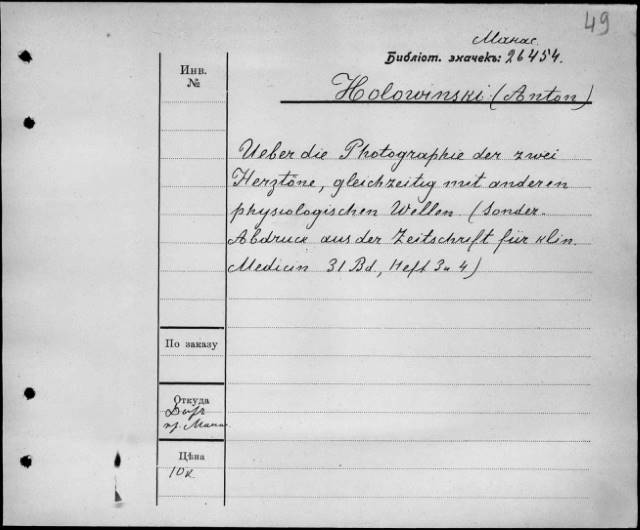 49
Манас.
Библіот. значекъ: 26454.
Инв.
№
Holowinski (Anton)
Ueber die Photographie der zwei
Herztöne, gleichzeitig mit anderen
physiologischen Wellen (Sonder-
Abdruck aus der Zeitschrift für klin.
Medicin 31 Bd, Heft 3 u 4)
По заказу
Откуда
пр. Манас.
Цѣна
10к